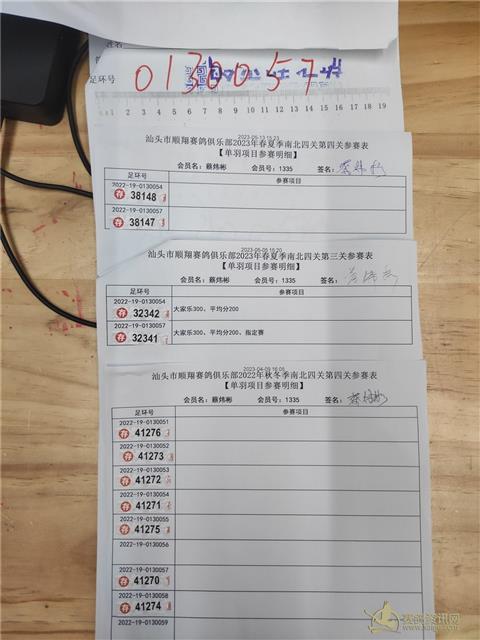 足环号
0130057
1 2 3 4 5 6 7 8 9 10 11 12 13 14 15 16 17 18 19
2023-05-13 15:23
汕头市顺翔赛鸽俱乐部2023年春夏季南北四关第四关参赛表
【单羽项目参赛明细】
会员名：蔡炜彬 会员号：1335 签名：蔡炜彬
足环号 参赛项目
2022-19-0130054
存 38148
2022-19-0130057
存 38147
2023-05-05 15:20
汕头市顺翔赛鸽俱乐部2023年春夏季南北四关第三关参赛表
【单羽项目参赛明细】
会员名：蔡炜彬 会员号：1335 签名：
足环号 参赛项目
2022-19-0130054
存 32342 大家乐300、平均分200
2022-19-0130057
存 32341 大家乐300、平均分200、指定赛
2023-04-09 16:05
汕头市顺翔赛鸽俱乐部2022年秋冬季南北四关第四关参赛表
【单羽项目参赛明细】
会员名：蔡炜彬 会员号：1335 签名：蔡炜彬
足环号 参赛项目
2022-19-0130051
存 41276
2022-19-0130052
存 41273
2022-19-0130053
存 41272
2022-19-0130054
存 41271
2022-19-0130055
存 41275
2022-19-0130056
2022-19-0130057
存 41270
2022-19-0130058
存 41274
2022-19-0130059
赛鸽资讯网